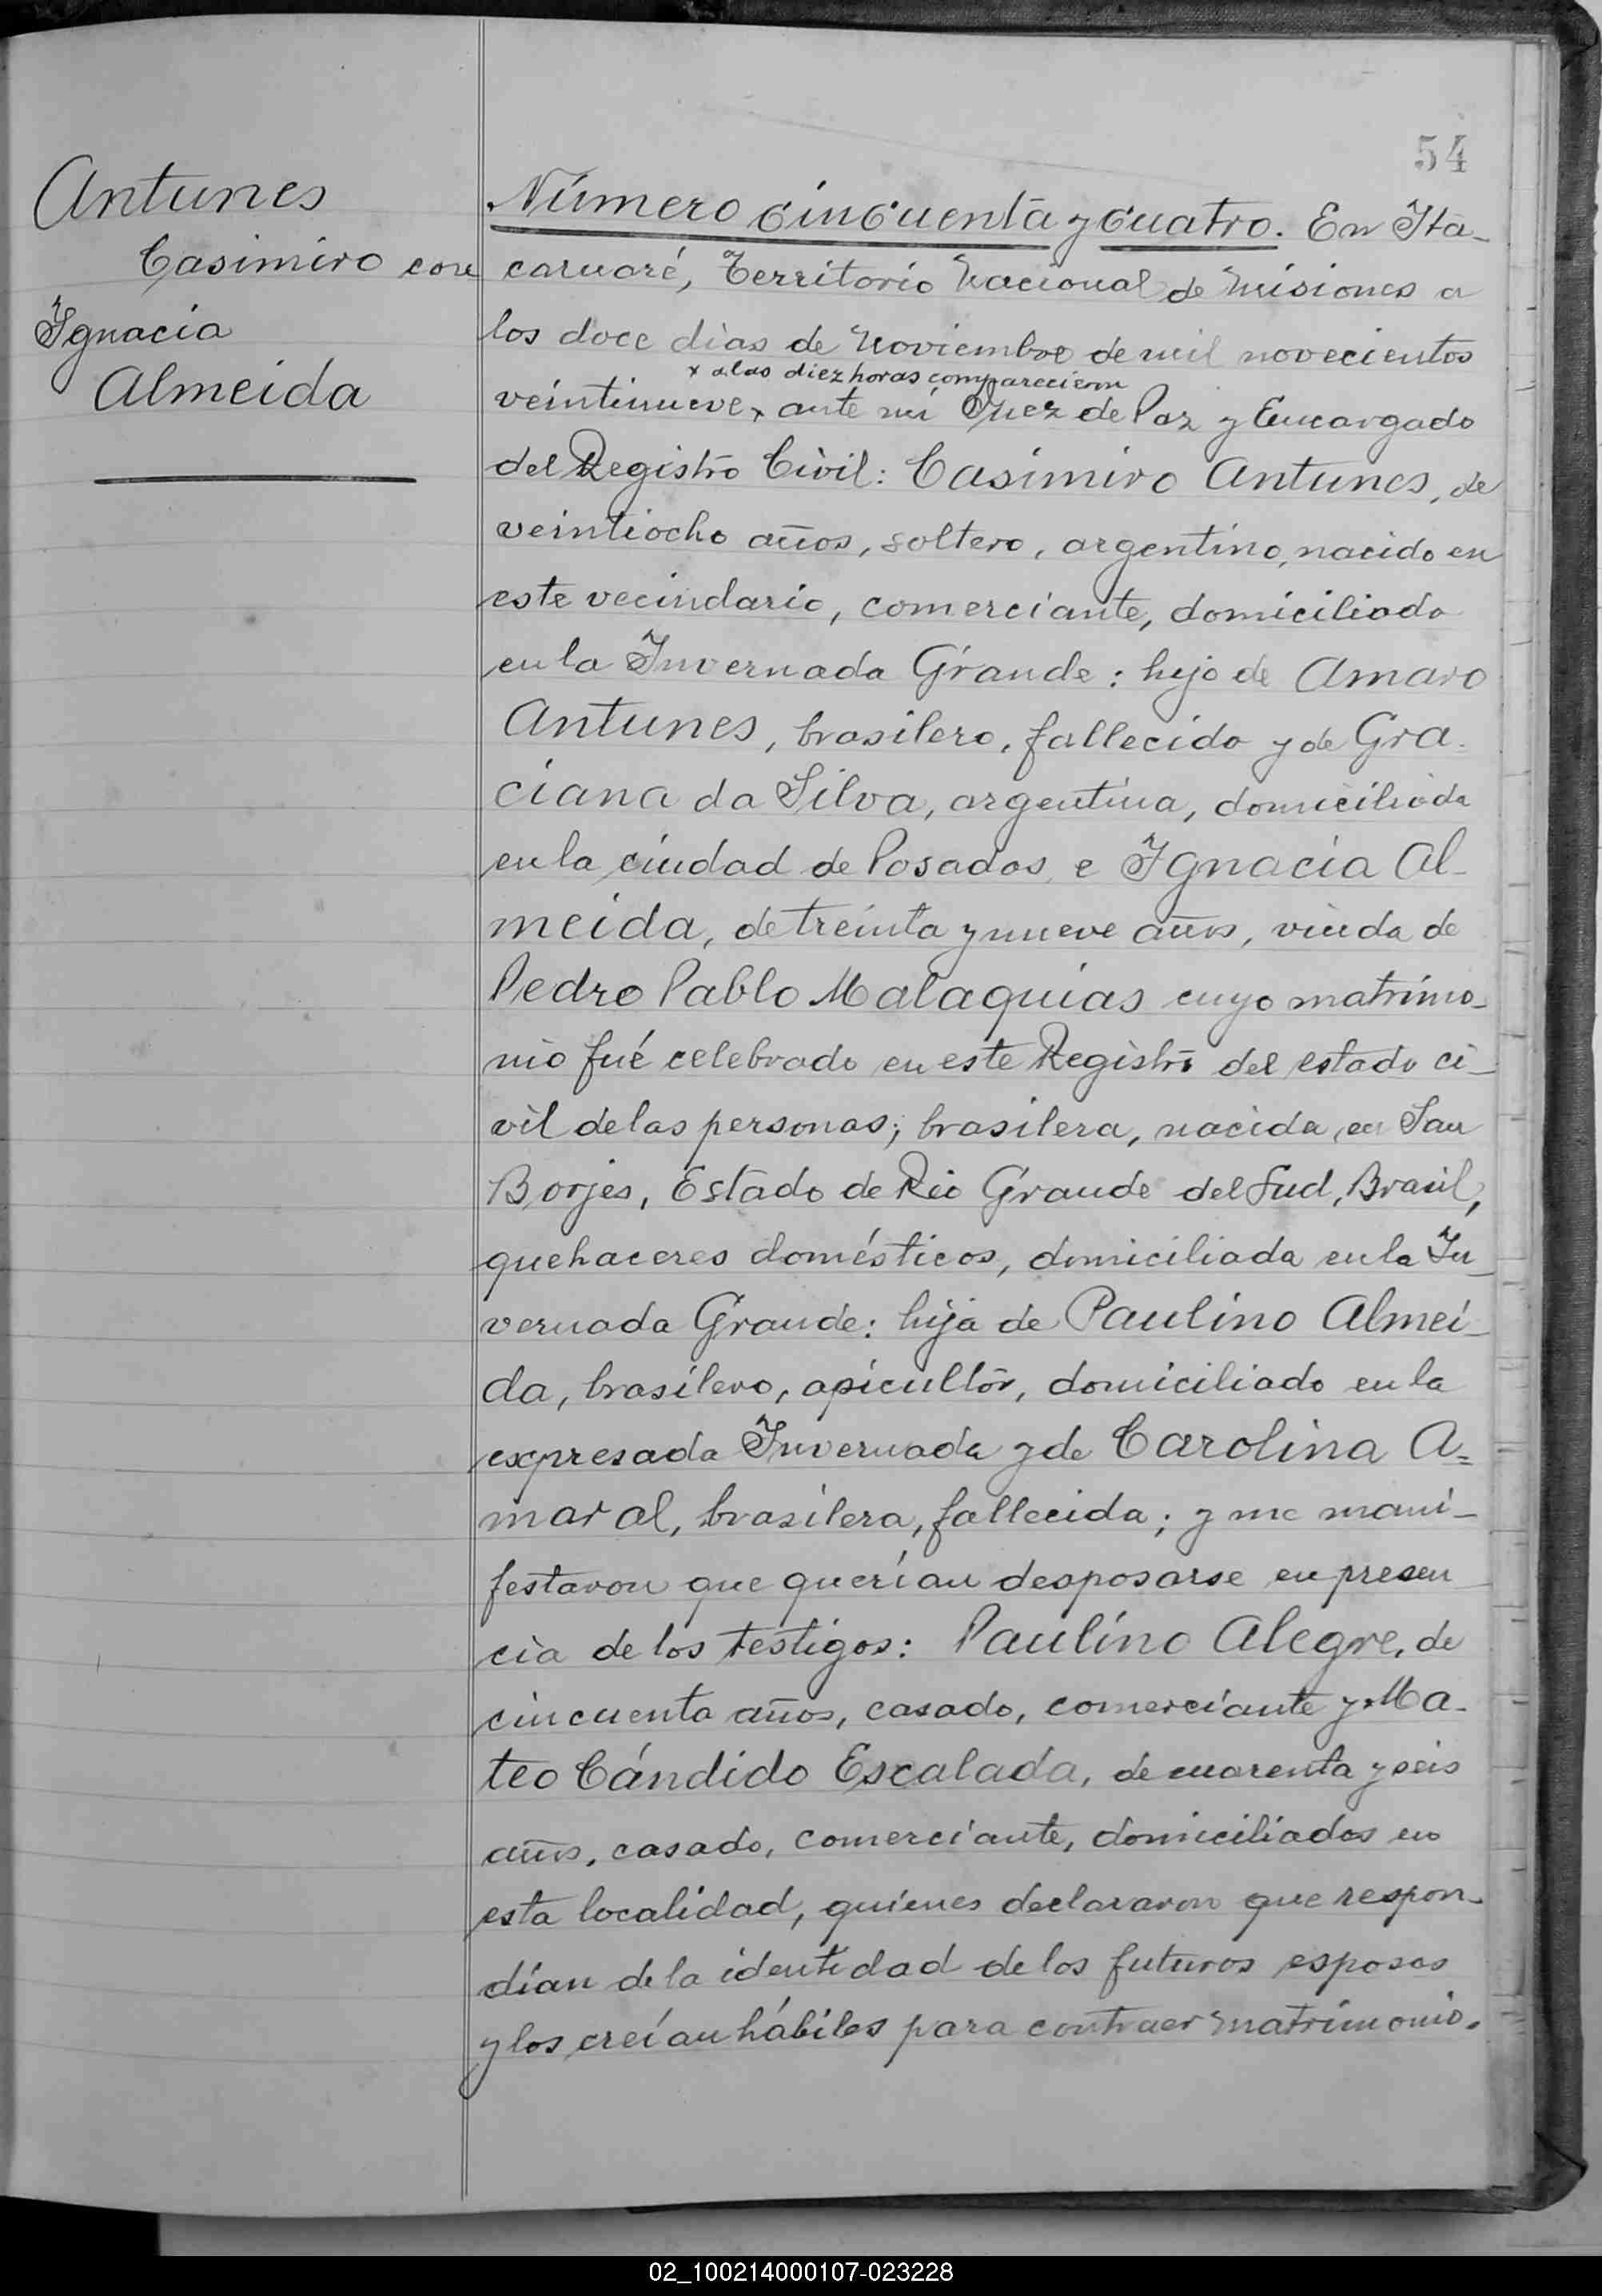 54
Antunes
Casimiro con
Ignacia
Almeida
Número cincuenta y cuatro. En Ita-
caruaré, Territorio Nacional de Misiones a
los doce dias de Noviembre de mil novecientos
x a las diez horas comparecieron
veintinueve x ante mi Juez de Paz y Encargado
del Registro Civil: Casimiro Antunes, de
veintiocho años, soltero, argentino, nacido en
este vecindario, comerciante, domiciliado
en la Invernada Grande: hijo de Amaro
Antunes, brasilero, fallecido y de Gra-
ciana da Silva, argentina, domiciliada
en la ciudad de Posadas, e Ignacia Al-
meida, de treinta y nueve años, viuda de
Pedro Pablo Malaquias cuyo matrimo-
nio fué celebrado en este Registro del estado ci-
vil de las personas; brasilera, nacida en San
Borjes, Estado de Rio Grande del Sud, Brasil,
quehaceres domésticos, domiciliada en la In-
vernada Grande: hija de Paulino Almei-
da, brasilero, apicultor, domiciliado en la
expresada Invernada y de Carolina A=
maral, brasilera, fallecida; y me mani-
festaron que querían desposarse en presen
cia de los testigos: Paulino Alegre, de
cincuenta años, casado, comerciante y Ma-
teo Cándido Escalada, de cuarenta y seis
años, casado, comerciante, domiciliados en
esta localidad, quienes declararon que respon-
dían de la identidad de los futuros esposos
y los creían hábiles para contraer matrimonio.
02_100214000107-023228